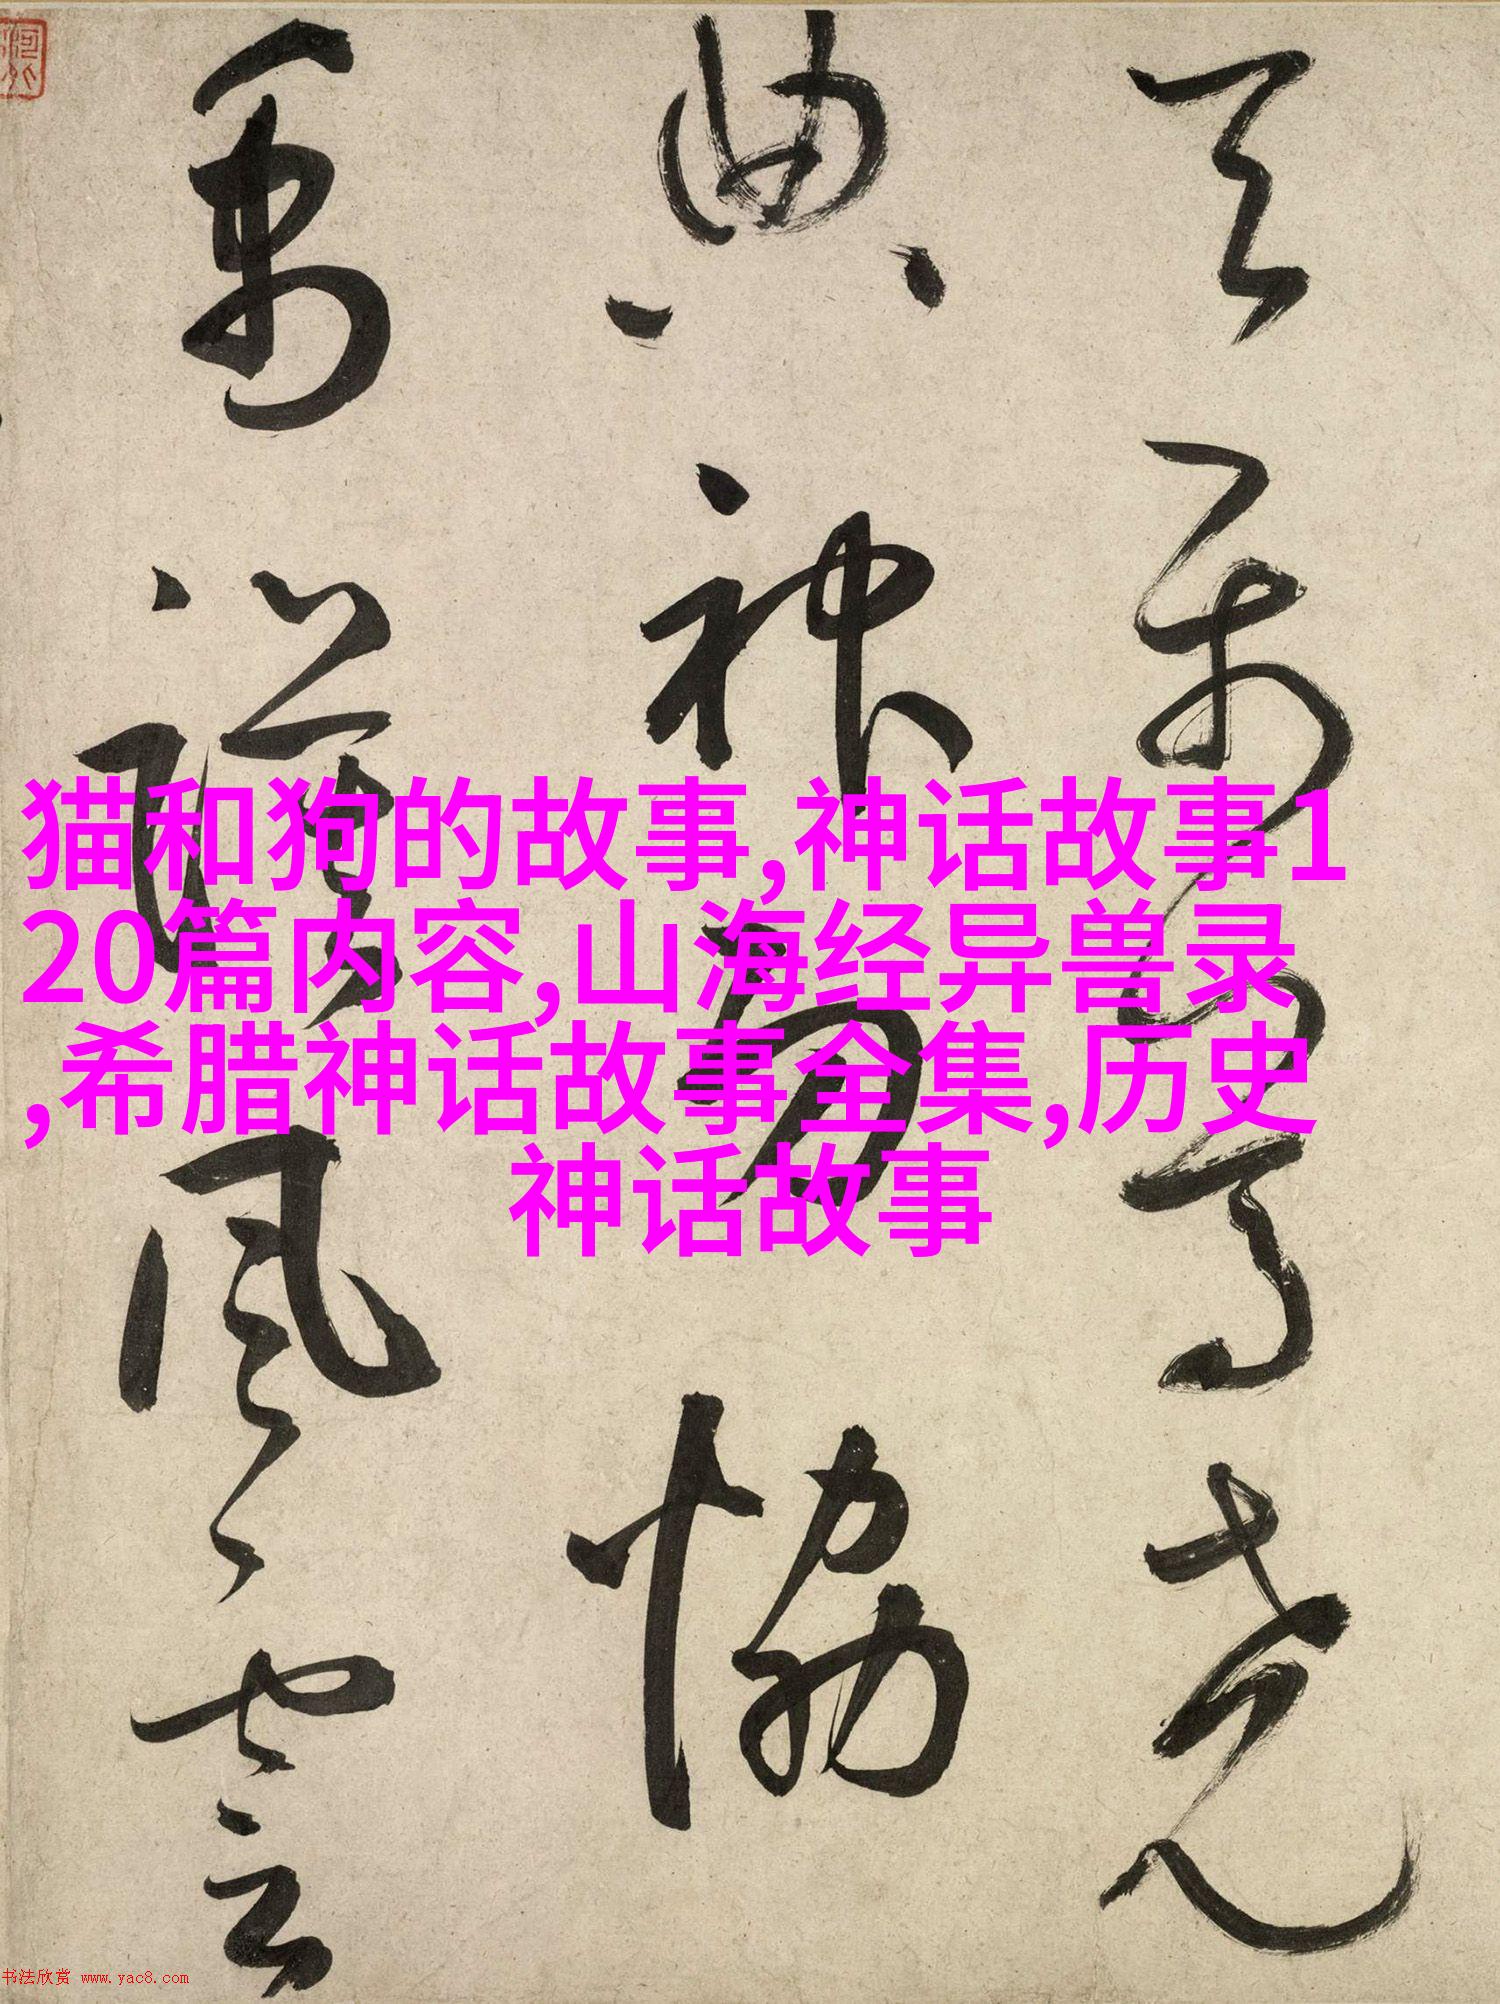 猫和狗的故事,神话故事1
20篇内容,山海经异兽录
,希腊神话故事全集,历史
神话故事
典神物恊
護風雲
书法欣赏 www.yac8.com